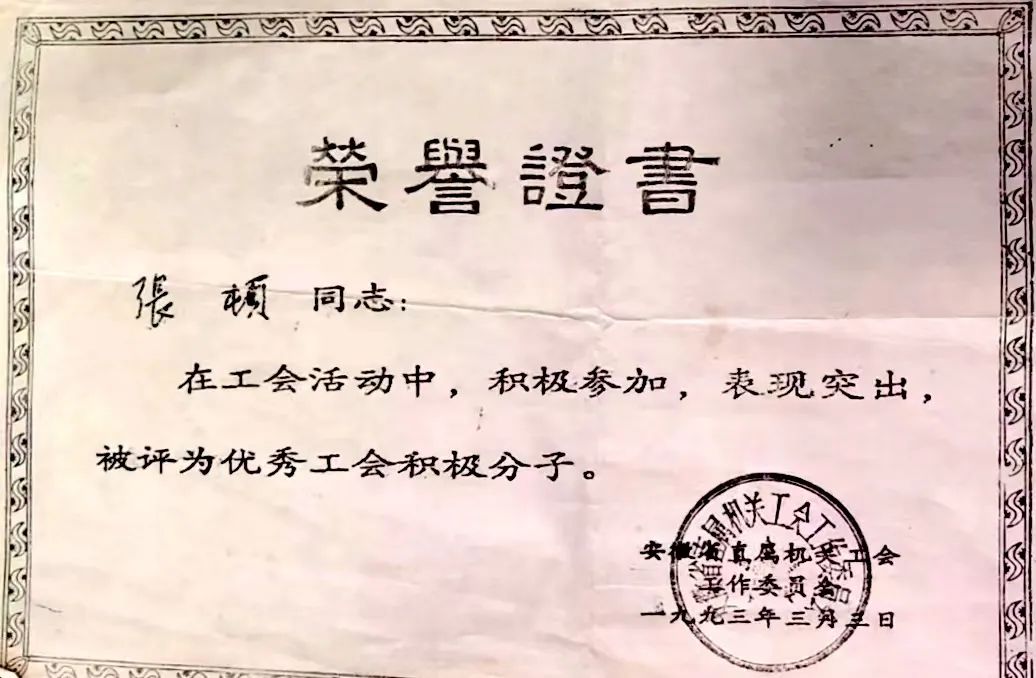 榮譽證書
張 頓 同志：
在工会活动中，积极参加，表现突出，
被评为优秀工会积极分子。
安徽省直属机关工会
工作委员会
一九九三年三月三日